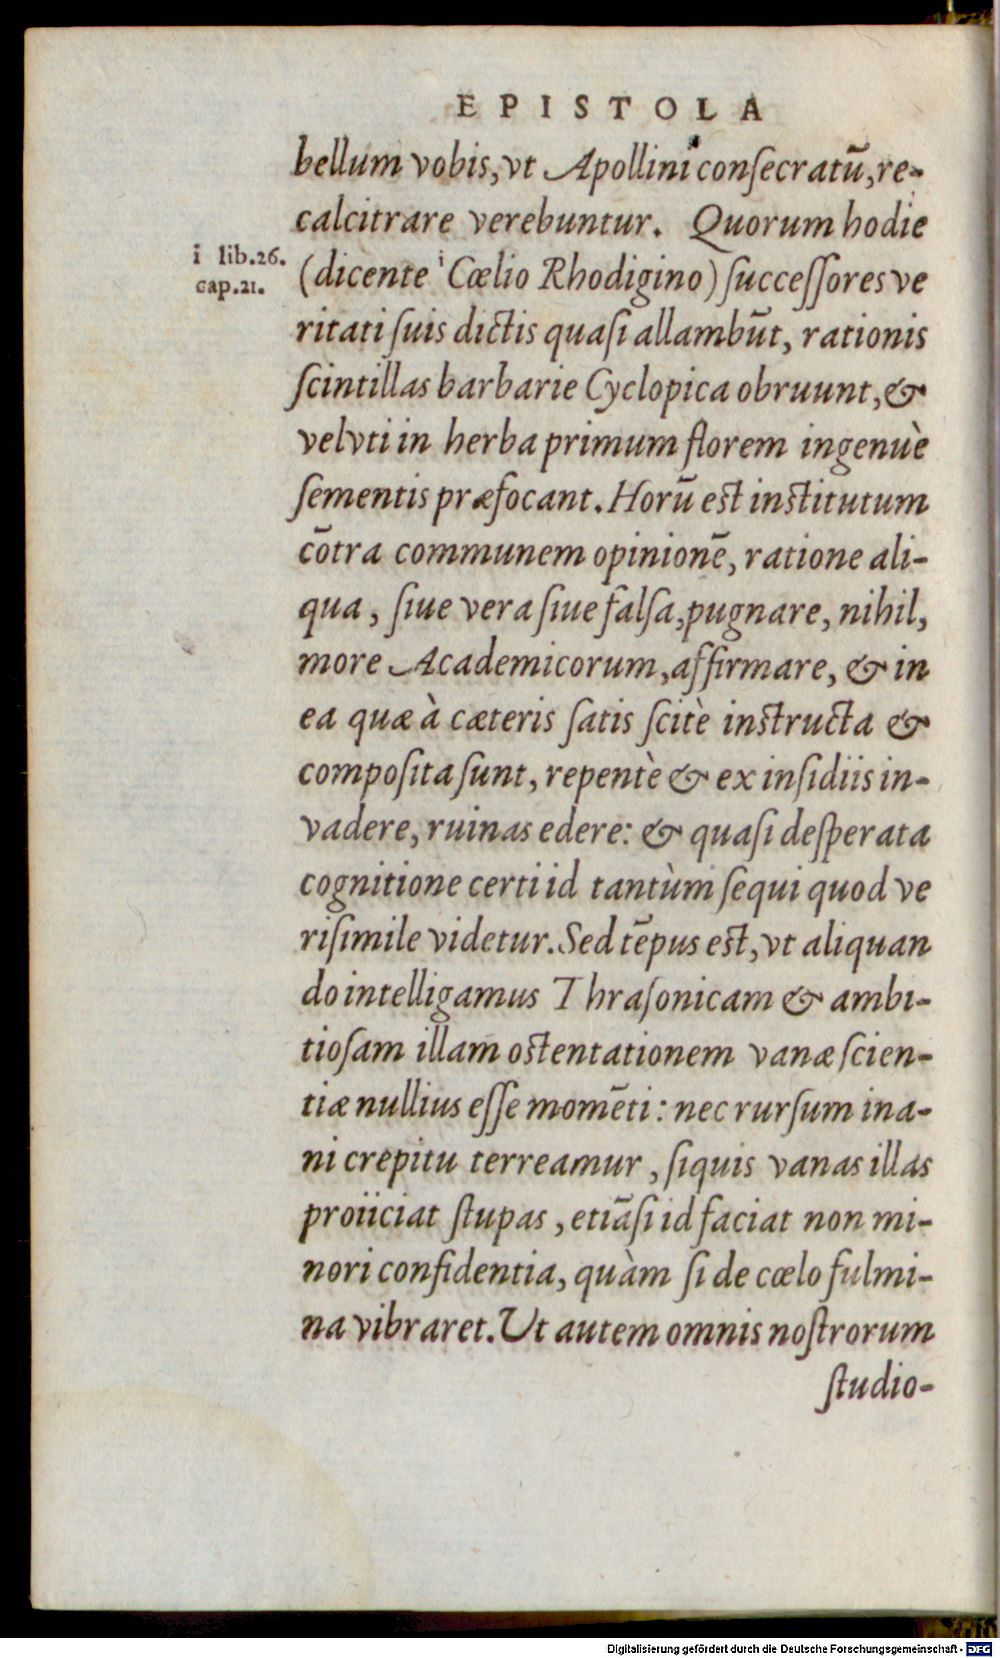 EPISTOLA
bellum vobis, vt Apollini conſecratū, re-
calcitrare verebuntur. Quorum hodie
i lib.26.
cap.21.
(dicente i Cœlio Rhodigino) ſucceſſores ve
ritati ſuis dictis quaſi allambūt, rationis
ſcintillas barbarie Cyclopica obruunt, &
velvti in herba primum florem ingenuè
ſementis præfocant. Horū eſt inſtitutum
cōtra communem opinionē, ratione ali-
qua, ſiue vera ſiue falſa, pugnare, nihil,
more Academicorum, affirmare, & in
ea quæ à cæteris ſatis ſcitè inſtructa &
compoſita ſunt, repentè & ex inſidiis in-
vadere, ruinas edere: & quaſi deſperata
cognitione certi id tantùm ſequi quod ve
riſimile videtur. Sed tēpus eſt, vt aliquan
do intelligamus Thraſonicam & ambi-
tioſam illam oſtentationem vanæ ſcien-
tiæ nullius eſſe momēti: nec rurſum ina-
ni crepitu terreamur, ſiquis vanas illas
proiiciat ſtupas, etiāſi id faciat non mi-
nori confidentia, quàm ſi de cœlo fulmi-
na vibraret. Ut autem omnis noſtrorum
ſtudio-
Digitalisierung gefördert durch die Deutsche Forschungsgemeinschaft - DFG